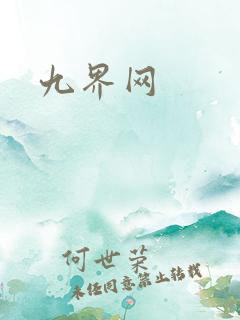 九界网
何世荣
未经同意禁止转载